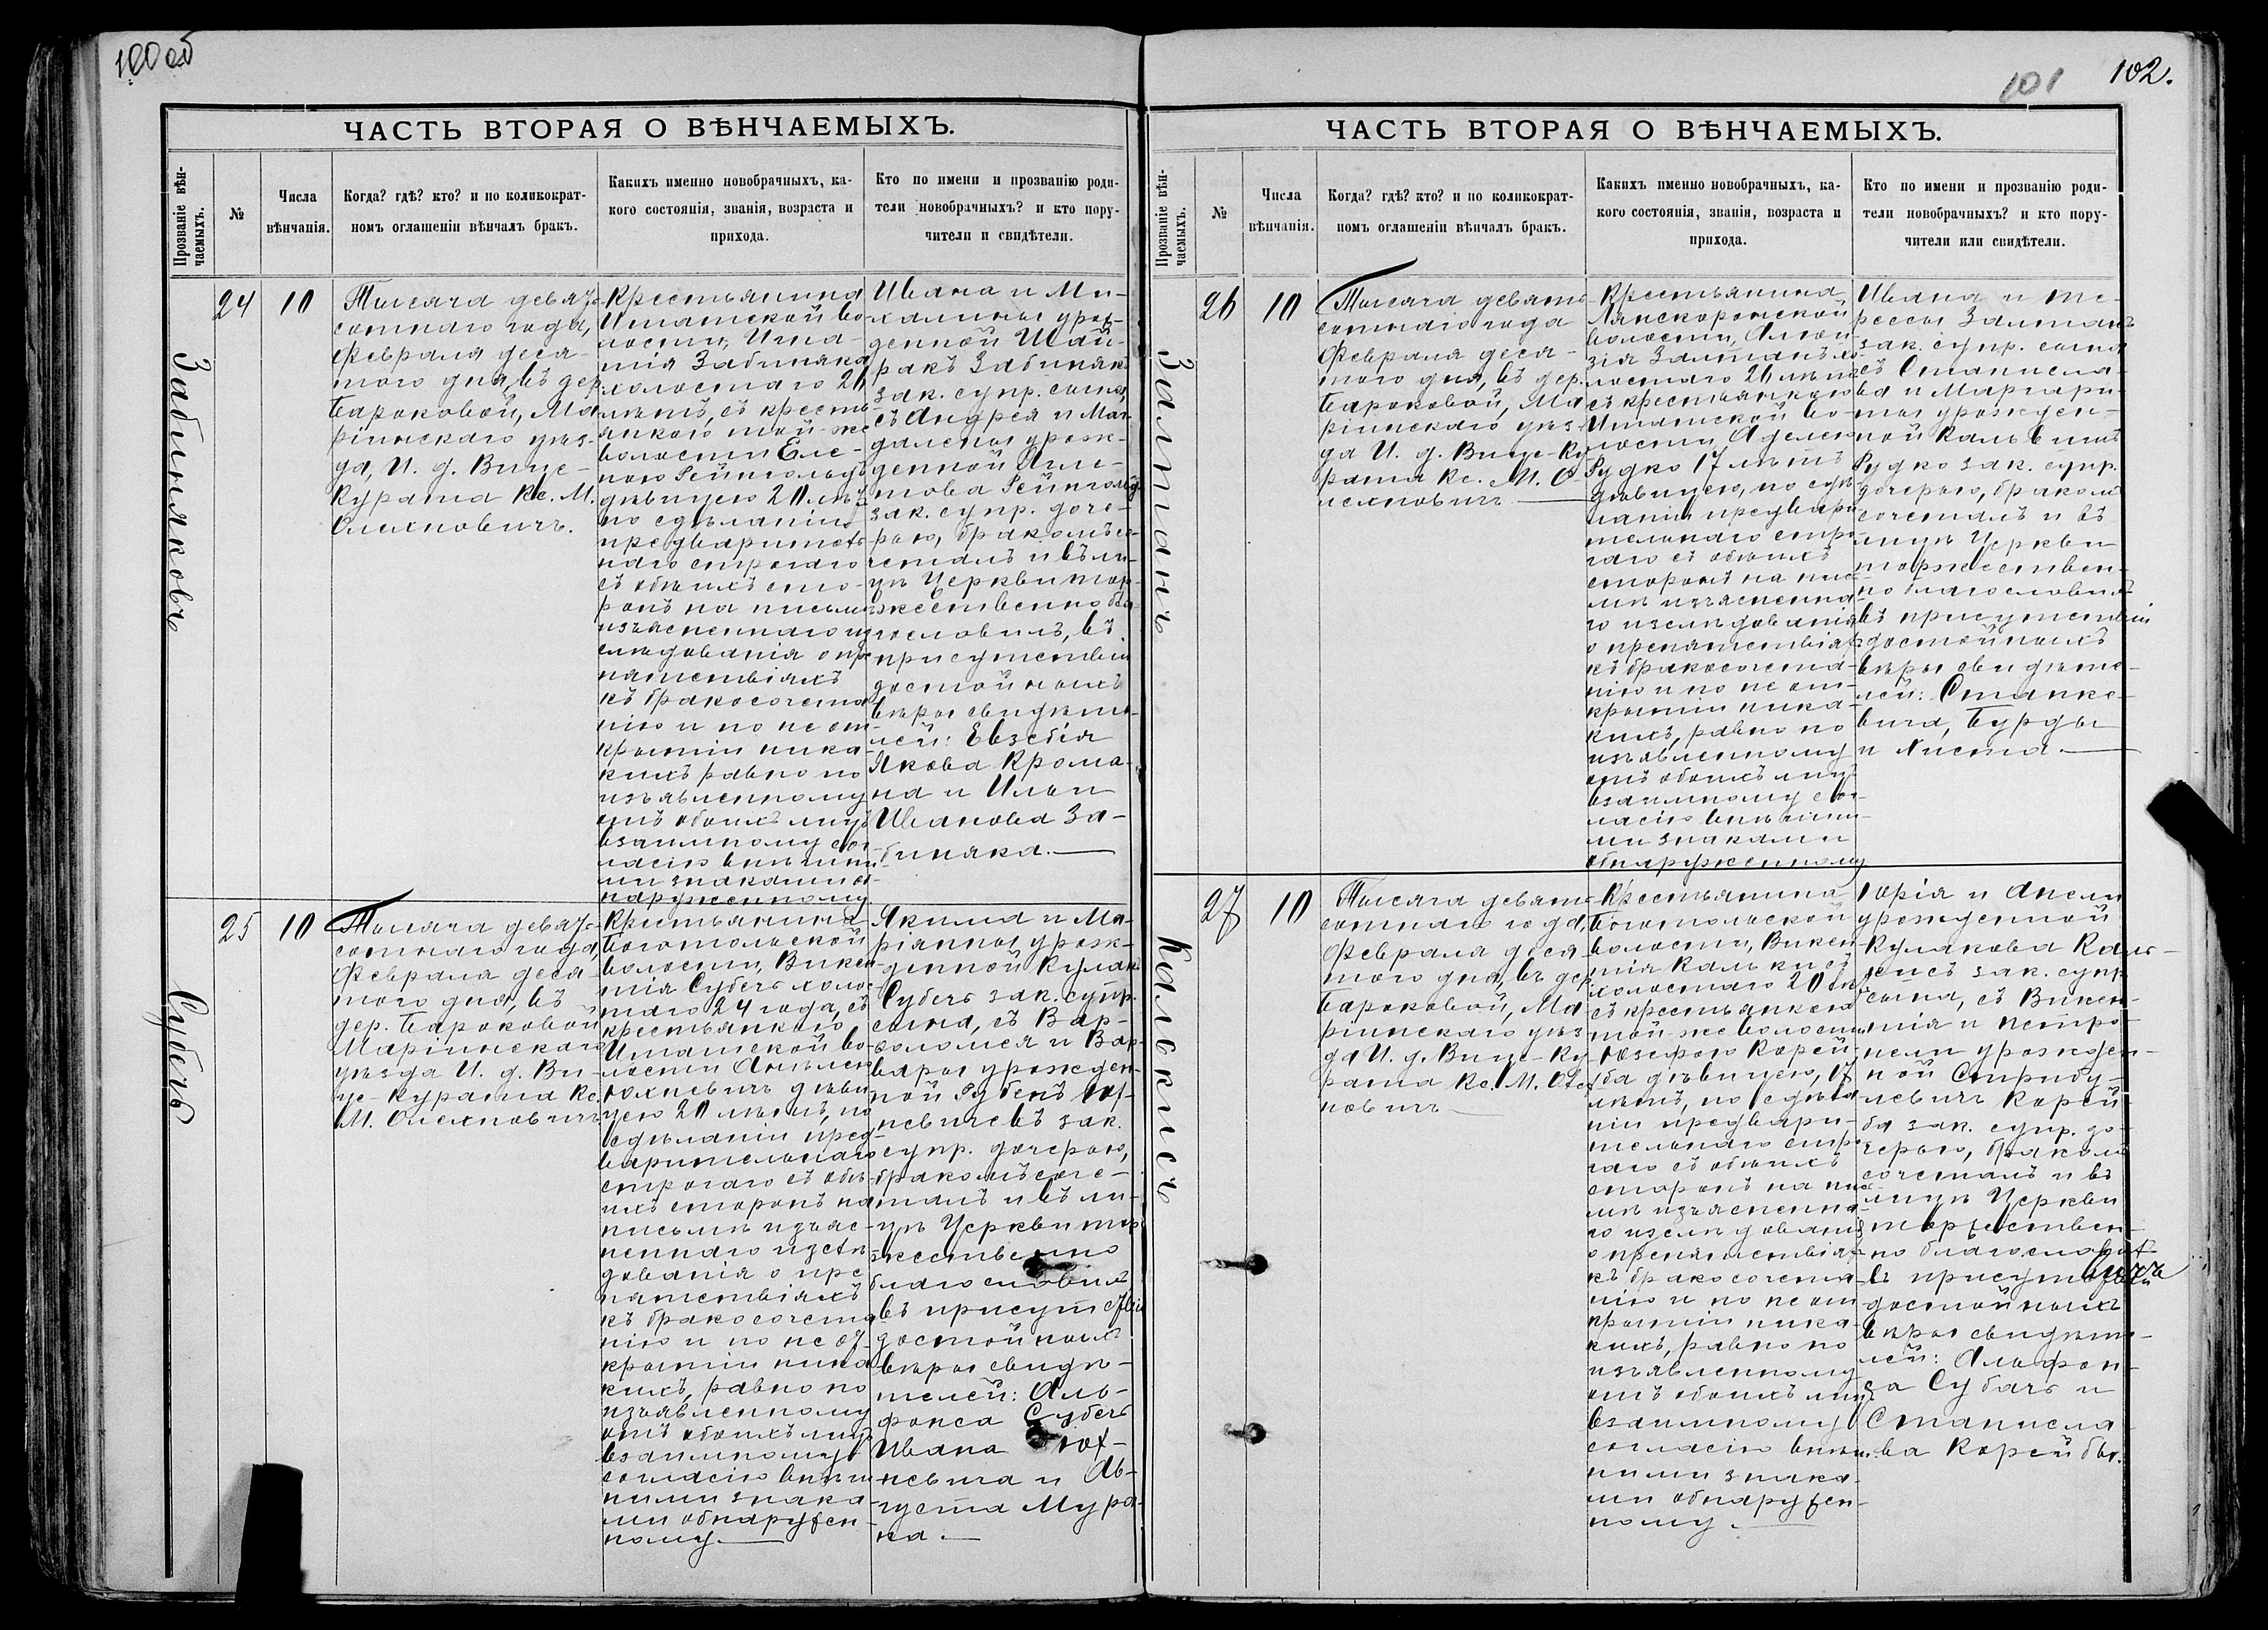 100 об
ЧАСТЬ ВТОРАЯ О ВѢНЧАЕМЫХЪ.
Прозваніе вѣн-
чаемыхъ.
№
Числа
вѣнчанія.
Когда? гдѣ? кто? и по коликократ-
номъ оглашеніи вѣнчалъ бракъ.
Какихъ именно новобрачныхъ, ка-
кого состоянія, званія, возраста и
прихода.
Кто по имени и прозванію роди-
тели новобрачныхъ? и кто пору-
чители и свидѣтели.
Забиняковъ
24
10
Тысяча девят-
сотнаго года,
Февраля деся-
того дня, въ дер.
Бароковой, Ма-
ріинскаго уѣз-
да, И. д. Вице-
Курата Кс. М.
Олехновичъ.
Крестьянина
Итатской во-
лости, Игна-
тія Забиняка
холостаго 26
лѣтъ, съ кресть-
янкою той-же
волости Еле-
ною Рейнгольдъ
дѣвицею 20 лѣтъ
по сдѣланіи
предваритель-
наго строгаго
съ обѣихъ сто-
ронъ на письмѣ
изъясненнаго из-
слѣдованія о пре-
пятствіяхъ
къ бракосочета-
нію и по не от-
крытіи ника-
кихъ равно по
изъявленному
отъ обоихъ лицъ
взаимному сог-
ласію внѣшни-
ми знаками об-
наруженному.
Ивана и Ми-
халины урож-
денной Шай-
ракъ Забинякъ
зак. супр. сына,
съ Андрея и Маг-
далены урож-
денной Агле-
това Рейнгольдъ
зак. супр. доче-
рью, бракомъ со-
четалъ и въ ли-
цѣ Церкви тор-
жественно бла-
гословилъ, въ
присутствіи
достойныхъ
вѣры свидѣте-
лей: Евзебія
Якова Крома-
на и Ильи
Иванова За-
биняка.
Субечъ
25
10
Тысяча девят-
сотнаго года,
Февраля деся-
того дня, въ
дер. Бароковой
Маріинскаго
уѣзда И. д. Ви-
це-Курата Кс.
М. Олехновичъ
Крестьянина
Боготольской
волости, Викен-
тія Субечъ холо-
таго 24 года, съ
крестьянкою
Итатской во-
лости Анѣлею
Юхневичъ дѣви-
цею 20 лѣтъ, по
сдѣланіи пред-
варительнаго
строгаго съ обѣ-
ихъ сторонъ на
письмѣ изъяс-
неннаго изслѣ-
дованія о пре-
пятствіяхъ
къ бракосочета-
нію и по не от-
крытіи ника-
кихъ, равно по
изъявленному
отъ обоихъ лицъ
взаимному
согласію внѣш-
ними знака-
ми обнаружен-
ному.
Якима и Ма-
ріанны урож-
денной Кулакъ
Субечъ зак. супр.
сына, съ Вар-
ѳоломея и Вар-
вары урожден-
ной Рубенъ Юх-
невичевъ зак.
супр. дочерью,
бракомъ соче-
талъ и въ ли-
цѣ Церкви тор-
жественно
благословилъ
въ присутствіи
достойныхъ
вѣры свидѣ-
телей: Аль-
фонса Субечъ
Ивана Юх-
невича и Ав-
густа Мура-
на.
101
102.
ЧАСТЬ ВТОРАЯ О ВѢНЧАЕМЫХЪ.
Прозваніе вѣн-
чаемыхъ.
№
Числа
вѣнчанія.
Когда? гдѣ? кто? и по коликократ-
номъ оглашеніи вѣнчалъ бракъ.
Какихъ именно новобрачныхъ, ка-
кого состоянія, званія, возраста и
прихода.
Кто по имени и прозванію роди-
тели новобрачныхъ? и кто пору-
чители или свидѣтели.
Залтанъ
26
10
Тысяча девять-
сотнаго года
Февраля деся-
того дня, въ дер.
Бароковой, Ма-
ріинскаго уѣз-
да И. д. Вице-Ку-
рата Кс. М. О-
лехновичъ
Крестьянина
Лянскоронской
волости, Алои-
зія Залтанъ хо-
лостаго 20 лѣтъ
съ крестьянкою
Итатской во-
лости Аделею
Рудко 17 лѣтъ
дѣвицею, по сдѣ-
ланіи предвари-
тельнаго стро-
гаго съ обѣихъ
сторонъ на пись-
мѣ изъясненна-
го изслѣдованія
о препятствіяхъ
къ бракосочета-
нію и по не от-
крытіи ника-
кихъ, равно по
изъявленному
отъ обоихъ лицъ
взаимному сог-
ласію внѣшни-
ми знаками
обнаруженному
Ивана и Те-
рессы Залтанъ
зак. супр. сына
съ Станисла-
ва и Маргари-
ты урожден-
ной Кальвишъ
Рудко зак. супр.
дочерью, бракомъ
сочеталъ и въ
лицѣ Церкви
торжествен-
но благословилъ
въ присутствіи
достойныхъ
вѣры свидѣте-
лей: Станке-
вича, Бурды
и Хиста.
Калькисъ
27
10
Тысяча девять-
сотнаго года,
Февраля деся-
того дня, въ дер.
Бароковой, Ма-
ріинскаго уѣз-
да И. д. Вице-Ку-
рата Кс. М. Олех-
новичъ
Крестьянина
Боготольской
волости, Викен-
тія Калькисъ
холостаго 20 лѣтъ
съ крестьянкою
той-же волости
Юзефою Корей-
ба дѣвицею, 17
лѣтъ, по сдѣла-
ніи предвари-
тельнаго стро-
гаго съ обѣихъ
сторонъ на пись-
мѣ изъясненна-
го изслѣдованія
о препятствіяхъ
къ бракосочета-
нію и по не от-
крытіи ника-
кихъ, равно по
изъявленному
отъ обоихъ лицъ
взаимному
согласію внѣш-
ними знака-
ми обнаружен-
ному.
Юрія и Анели
урожденной
Кулакова Каль-
кисъ зак. супр.
сына, съ Викен-
тія и Петро-
нели урожден-
ной Сприбу-
левичъ Корей-
ба зак. супр. до-
черью, бракомъ
сочеталъ и въ
лицѣ Церкви
торжествен-
но благословилъ
въ присутствіи
достойныхъ
вѣры свидѣте-
лей: Альфон-
са Субачъ и
Станисла-
ва Корейбы.